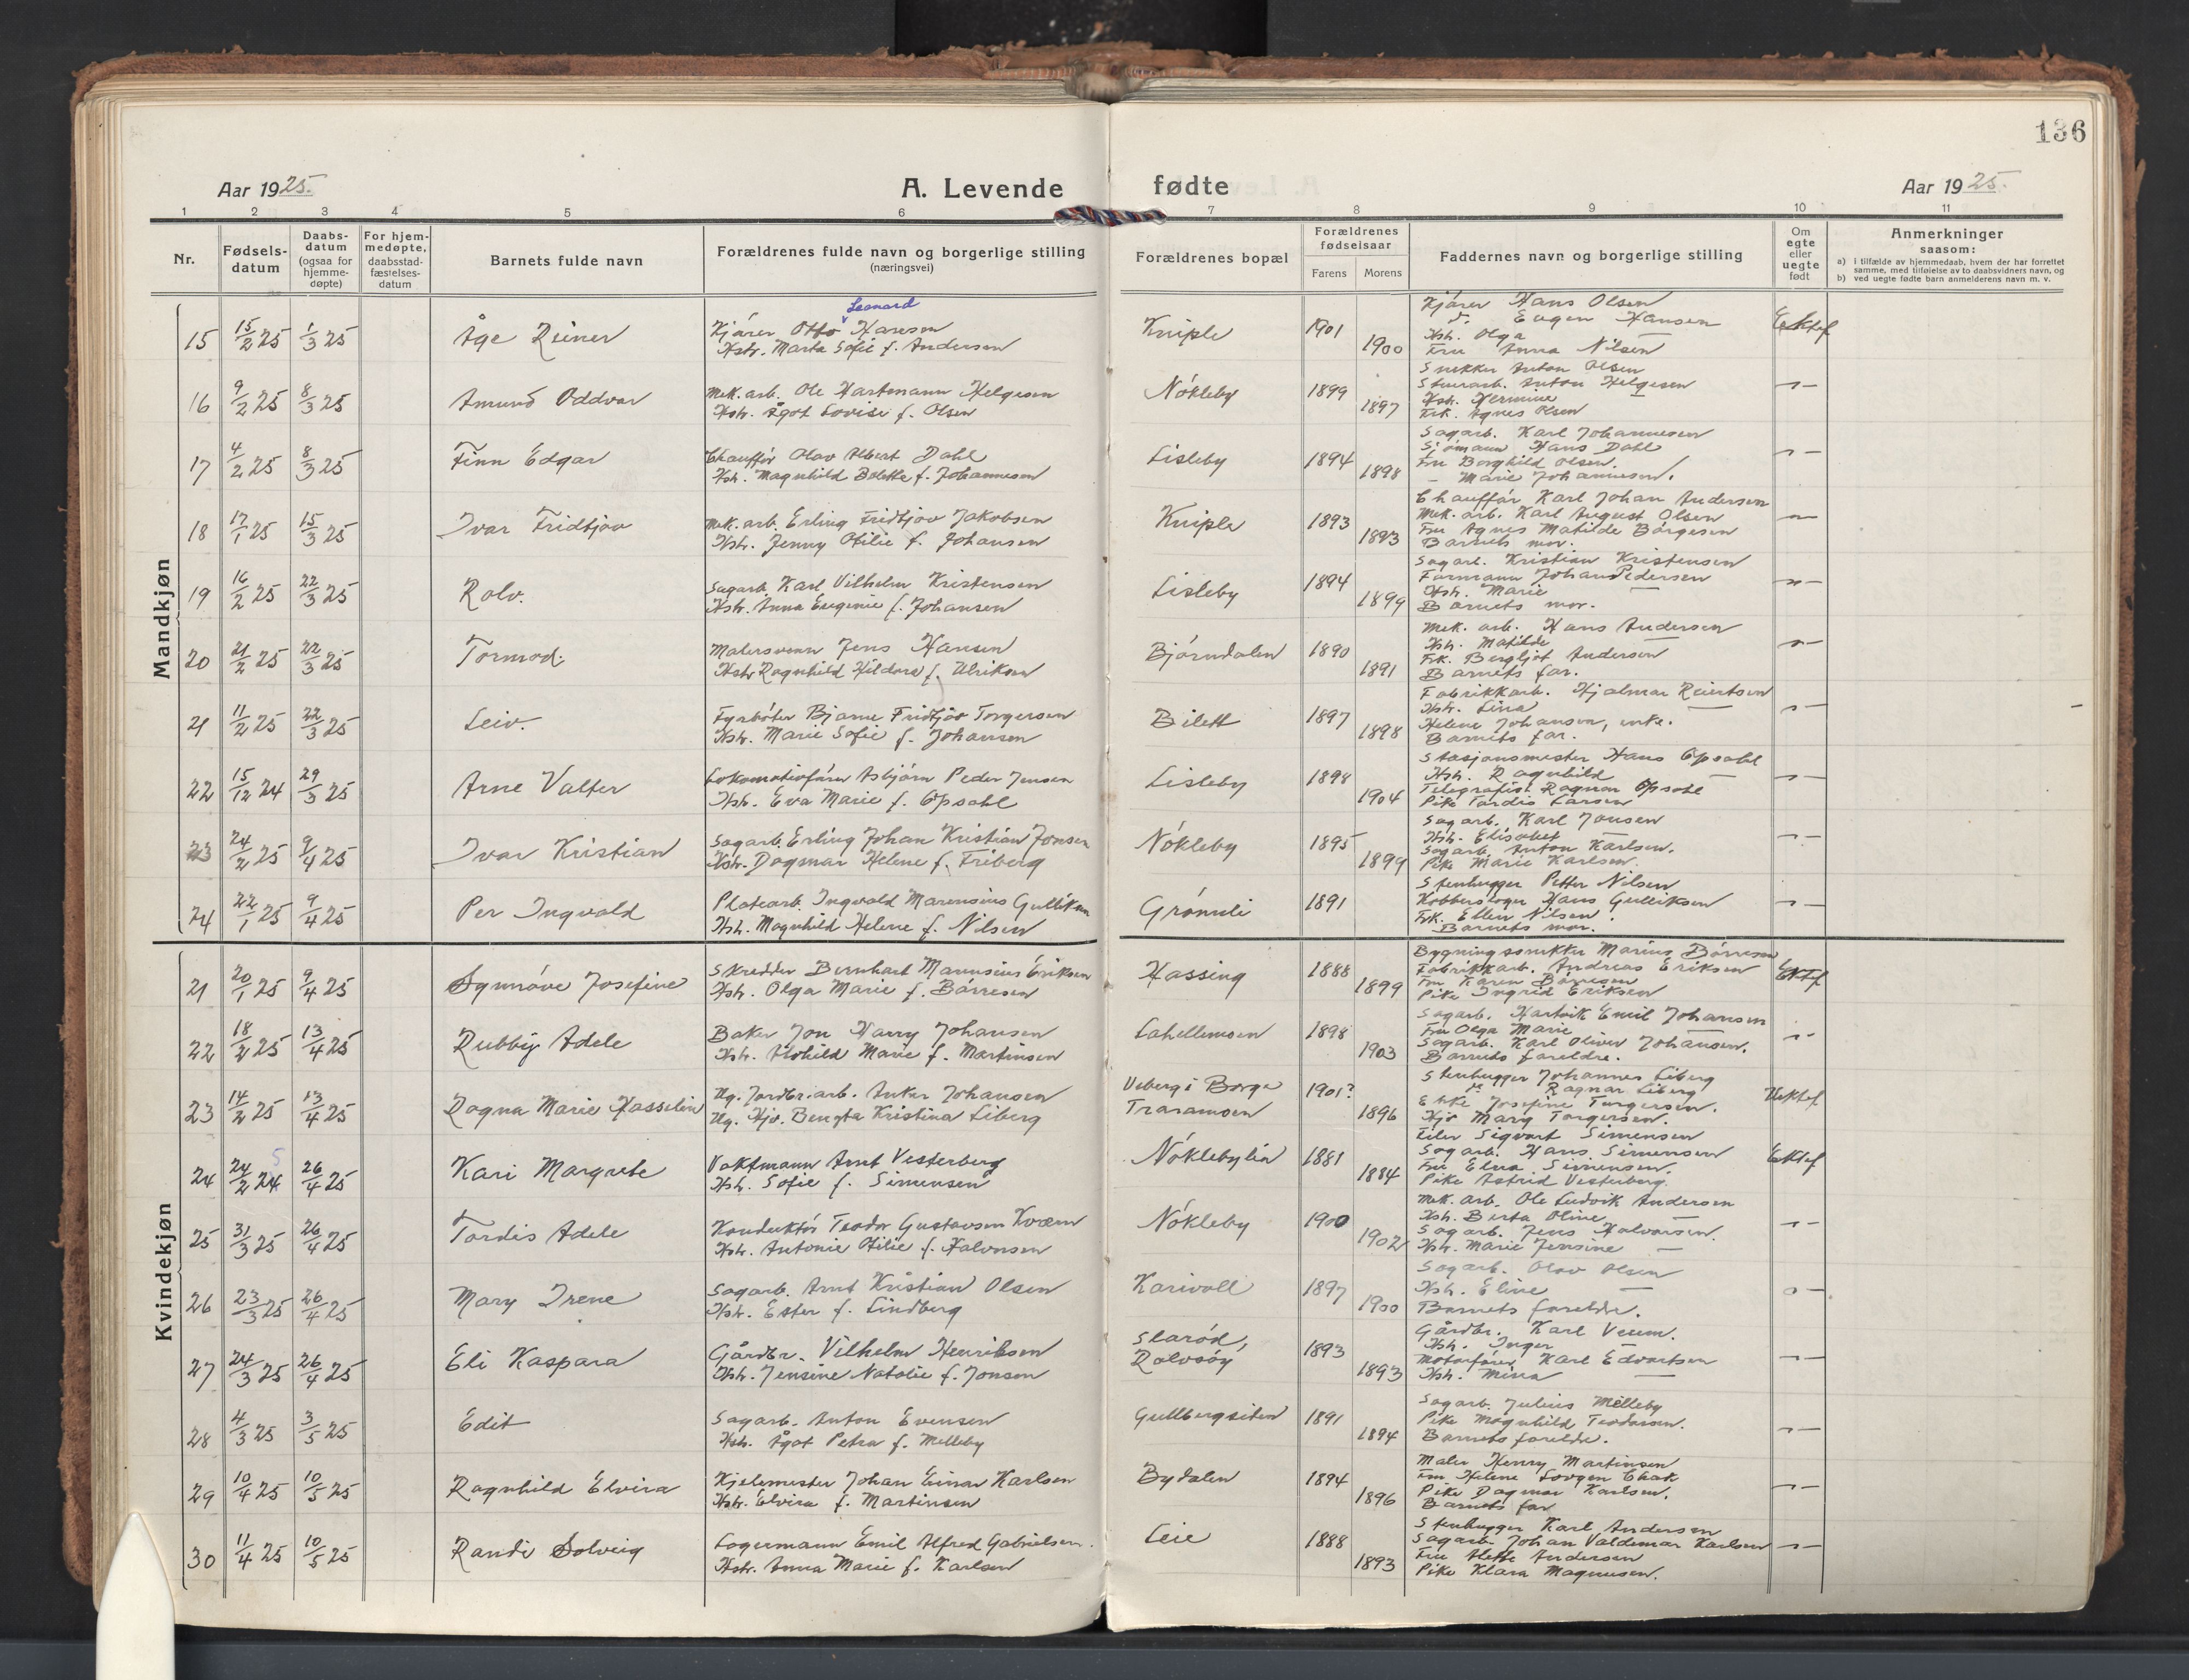 136
Aar 1925.
A. Levende fødte
Aar 1925.
1 2 3 4 5 6 7 8 9 10 11
Nr.
Fødsels-
datum
Daabs-
datum
(ogsaa for
hjemme-
døpte)
For hjem-
medøpte,
daabsstad-
fæstelses-
datum
Barnets fulde navn
Forældrenes fulde navn og borgerlige stilling
(næringsvei)
Forældrenes bopæl
Forældrenes
fødselsaar
Farens Morens
Faddernes navn og borgerlige stilling
Om
egte
eller
uegte
født
Anmerkninger
saasom:
a) i tilfælde av hjemmedaab, hvem der har forrettet
samme, med tilføielse av to daabsvidners navn, og
b) ved uegte fødte barn anmelderens navn m. v.
Mandkjøn
15 15/2 25 1/3 25 Åge Reiner
Leonard
Kjører Otto Hansen
Hstr. Marta Sofie f. Andersen
Kniple 1901 1900
Kjører Hans Olsen
do. Eugen Hansen
Hstr. Olga —
Fru Anna Nilsen
Ektef
16 9/2 25 8/3 25 Amund Oddvar
Mek. arb. Ole Hartmann Helgesen
Hstr. Ågot Lovise f. Olsen
Nökleby 1899 1897
Snekker Anton Olsen
Stuerarb. Anton Helgesen
Hstr. Hermine —
Frk. Agnes Olsen
17 4/2 25 8/3 25 Finn Edgar
Chauffør Olav Albert Dahl
Hstr. Magnhild Bolette f. Johannesen
Lisleby 1894 1898
Sagarb. Karl Johannesen
Sjömann Hans Dahl
Fru Borghild Olsen.
— Marie Johannesen.
18 17/1 25 15/3 25 Ivar Fridtjov
Mek. arb. Erling Fridtjov Jakobsen
Hstr. Jenny Otilie f. Johansen
Kniple 1893 1893
Chauffør Karl Johan Andersen
Mek. arb. Karl August Olsen
Fru Agnes Matilde Börgesen
Barnets mor.
19 16/2 25 22/3 25 Rolv.
Sagarb. Karl Vilhelm Kristensen
Hstr. Anna Eugenie f. Johansen
Lisleby 1894 1899
Sagarb. Kristian Kristensen
Formann Johan Pedersen
Hstr. Marie —
Barnets mor.
20 21/2 25 22/3 25 Tormod.
Malersvenn Jens Hansen
Hstr. Ragnhild Hildora f. Ulriksen
Björndalen 1890 1891
Mek. arb. Hans Andersen
Hstr. Matilde —
Frk. Bergljot Andersen
Barnets far.
21 11/2 25 22/3 25 Leiv.
Fyrbøter Bjarne Fridtjov Torgersen
Hstr. Marie Sofie f. Johansen
Bilett 1897 1898
Fabrikkarb. Hjalmar Reiertsen
Hstr. Lina —
Helene Johansen, enke.
Barnets far.
22 15/12 24 29/3 25 Arne Valter
Lokomotivfører Asbjörn Peder Jensen
Hstr. Eva Marie f. Opsahl
Lisleby 1898 1904
Stasjonsmester Hans Opsahl
Hstr. Ragnhild —
Telegrafist Ragnar Opsahl
Pike Tordis Larsen
23 24/2 25 9/4 25 Ivar Kristian
Sagarb. Erling Johan Kristian Jonsen
Hstr. Dagmar Helene f. Friberg
Nökleby 1895 1899
Sagarb. Karl Jonsen
Hstr. Elisabet —
Sagarb. Anton Karlsen.
Pike Marie Karlsen.
24 22/1 25 9/4 25 Per Ingvald
Platearb. Ingvald Marensius Gulliksen
Hstr. Magnhild Helene f. Nilsen
Grönnli 1891
Stenhugger Petter Nilsen
Kobberslager Hans Gulliksen
Frk. Ellen Nilsen.
Barnets mor.
Kvindekjøn
21 20/1 25 9/4 25 Synnöve Josefine
Skredder Bernhart Marensius Eriksen
Hstr. Olga Marie f. Börresen
Hassing 1888 1899
Bygningssnekker Marius Börresen
Fabrikkarb. Andreas Eriksen
Fru Karen Börresen
Pike Ingrid Eriksen
Ektef
22 18/2 25 13/4 25 Rubby Adele
Baker Jon Harry Johansen
Hstr. Alvhild Marie f. Martinsen
Lahellemoen 1898 1903
Sagarb. Hartvik Emil Johansen
Fru Olga Marie —
Sagarb. Karl Oliver Johansen.
Barnets foreldre.
23 14/2 25 13/4 25 Ragna Marie Hasselin
Ug. Jordbr.arb. Anker Johansen
Ug. Hjv. Bengta Kristina Liberg
Veberg i Borge
Traramoen
1901? 1896
Stenhugger Johannes Liberg
do Ragnar Liberg
Enke Josefine Torgersen.
Hjv Mary Torgersen.
Uektef
24 24/2 24 5 26/4 25 Kari Margrete
Vaktmann Arnt Vesterberg
Hstr. Sofie f. Simensen
Nöklebylia 1881 1884
Feiler Sigvart Simensen
Sagarb. Hans Simensen
Fru Elna Simensen.
Pike Astrid Vesterberg.
Ektef
25 31/3 25 26/4 25 Tordis Adele
Konduktör Teodor Gustavsen Kværn
Hstr. Antonie Otilie f. Halvorsen
Nökleby 1900 1902
Mek. arb. Ole Ludvik Andersen
Hstr. Berta Oline —
Sagarb. Jens Halvorsen.
Hstr. Marie Jensine —
26 23/3 25 26/4 25 Mary Irene
Sagarb. Arnt Kristian Olsen
Hstr. Ester f. Lindberg
Karivoll 1897 1900
Sagarb. Olav Olsen
Hstr. Eline —
Barnets foreldre.
27 24/3 25 26/4 25 Eli Kaspara
Gårdbr. Vilhelm Henriksen
Hstr. Jensine Natalie f. Jonsen
Slaröd,
Rolvsöy
1893 1893
Gårdbr. Karl Veum.
Hstr. Inger —
Motorförer Karl Edvartsen
Hstr. Mina —
28 4/3 25 3/5 25 Edit
Sagarb. Anton Evensen
Hstr. Ågot Petra f. Melleby
Gullbergsiten 1891 1894
Sagarb. Julius Melleby
Pike Magnhild Teodorsen.
Barnets foreldre.
29 10/4 25 10/5 25 Ragnhild Elvira
Kjelemester Johan Einar Karlsen
Hstr. Elvira f. Martinsen
Bydalen 1894 1896
Maler Henry Martinsen
Fru Helene
Pike Dagmar Karlsen.
Barnets far
30 11/4 25 10/5 25 Randi Solveig
Lagermann Emil Alfred Gabrielsen.
Hstr. Anna Marie f. Karlsen
Leie 1888 1893
Stenhugger Karl Andersen
Sagarb. Johan Valdemar Karlsen
Fru Alette Andersen
Pike Klara Magnusen.